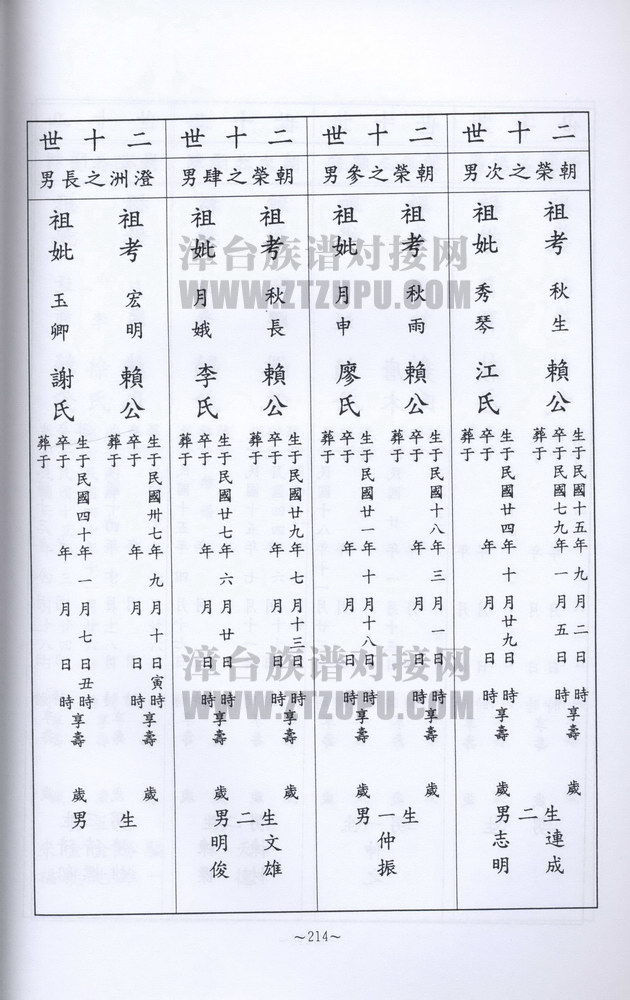 二十世
朝榮之次男
祖考 秋生 賴公
生于民國十五年九月二日 時享壽 歲
卒于民國七九年一月五日 時
葬于
祖妣 秀琴 江氏
生于民國廿四年十月廿九日 時享壽 歲
卒于 年 月 日 時
葬于
生二男
連成
志明
二十世
朝榮之參男
祖考 秋雨 賴公
生于民國十八年三月一日 時享壽 歲
卒于 年 月 日 時
葬于
祖妣 月申 廖氏
生于民國廿一年十月十八日 時享壽 歲
卒于 年 月 日 時
葬于
生一男
仲振
二十世
朝榮之肆男
祖考 秋長 賴公
生于民國廿九年七月十三日 時享壽 歲
卒于 年 月 日 時
葬于
祖妣 月娥 李氏
生于民國廿七年六月廿日 時享壽 歲
卒于 年 月 日 時
葬于
生二男
文雄
明俊
二十世
澄洲之長男
祖考 宏明 賴公
生于民國卅七年九月十日寅時享壽 歲
卒于 年 月 日 時
葬于
祖妣 玉卿 謝氏
生于民國四十年一月七日丑時享壽 歲
卒于 年 月 日 時
葬于
生 男
漳台族谱对接网
WWW.ZTZUPU.COM
漳台族谱对接网
WWW.ZTZUPU.COM
~214~